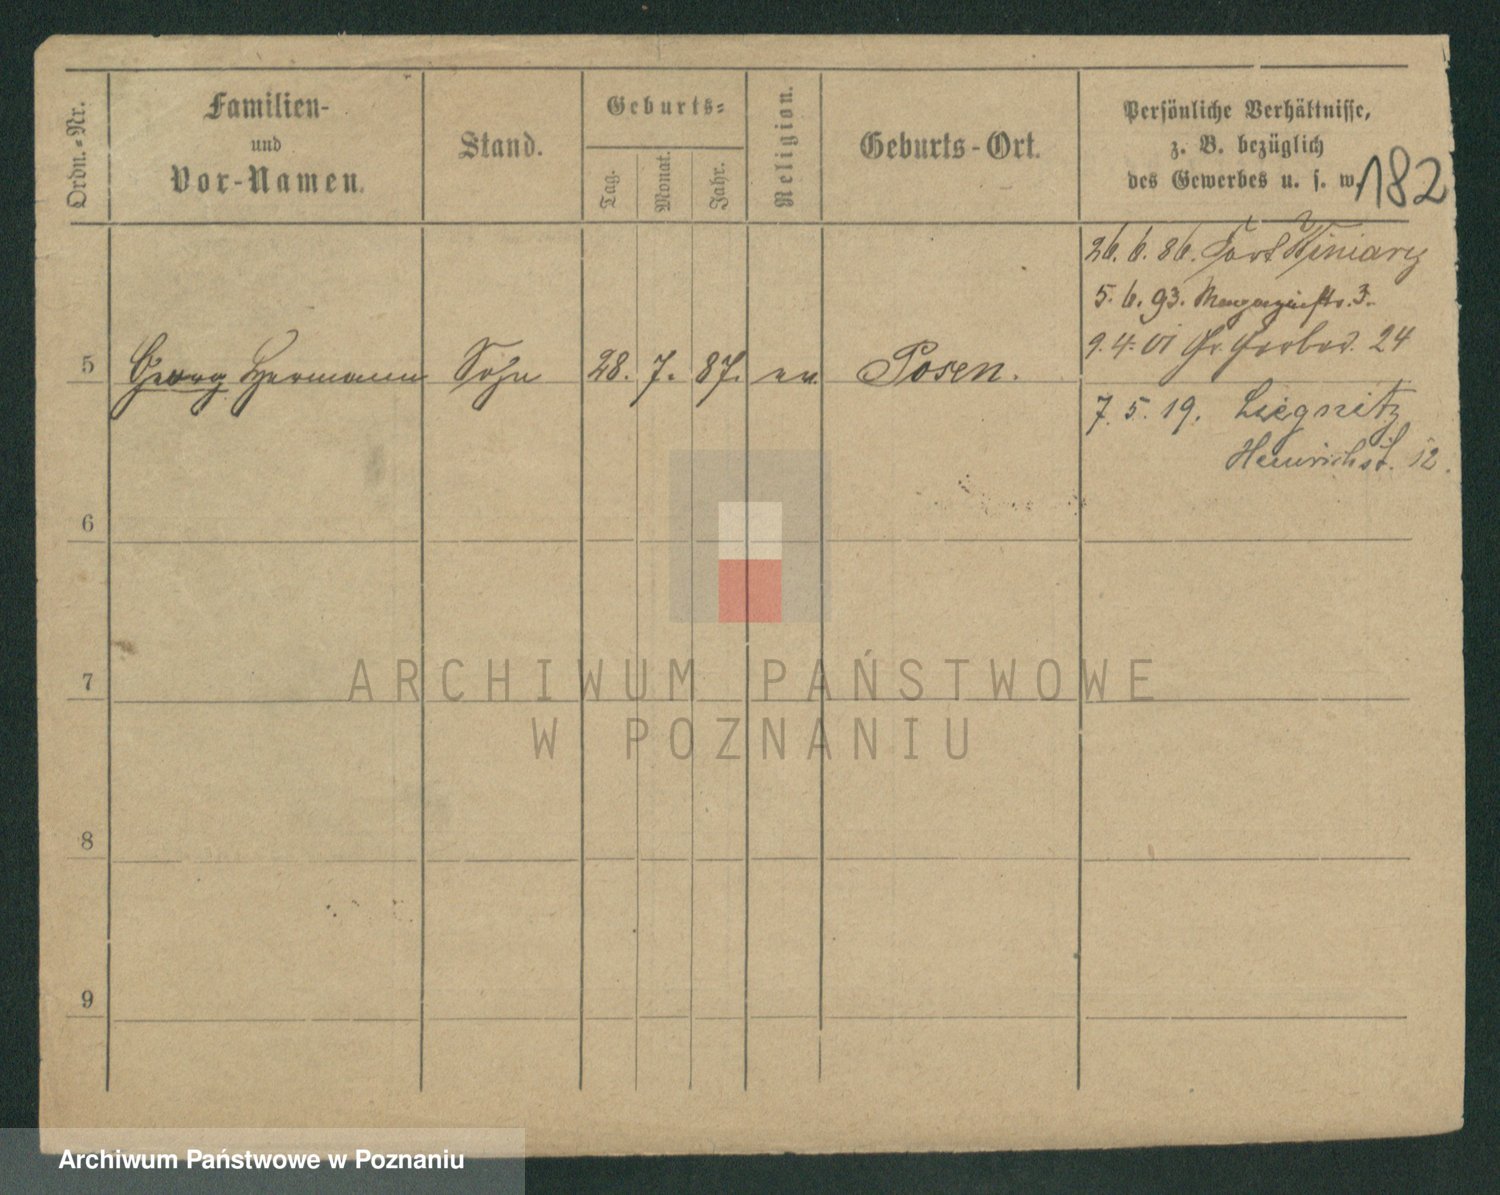 Ordn.-Nr.
Familien-
und
Vor-Namen.
Stand.
Geburts-
Tag.
Monat.
Jahr.
Religion.
Geburts-Ort.
Persönliche Verhältnisse,
z. B. bezüglich
des Gewerbes u. s. w.
182
26. 6. 86. Fort Winiary
5. 6. 93. Magazinstr. 3.
9. 4. 01 Gr. Gerberst. 24
5 Georg Hermann Sohn 28. 7. 87. ev. Posen.
7. 5. 19. Liegnitz
Heinrichst. 12.
6
7
8
9
ARCHIWUM PAŃSTWOWE
W POZNANIU
Archiwum Państwowe w Poznaniu